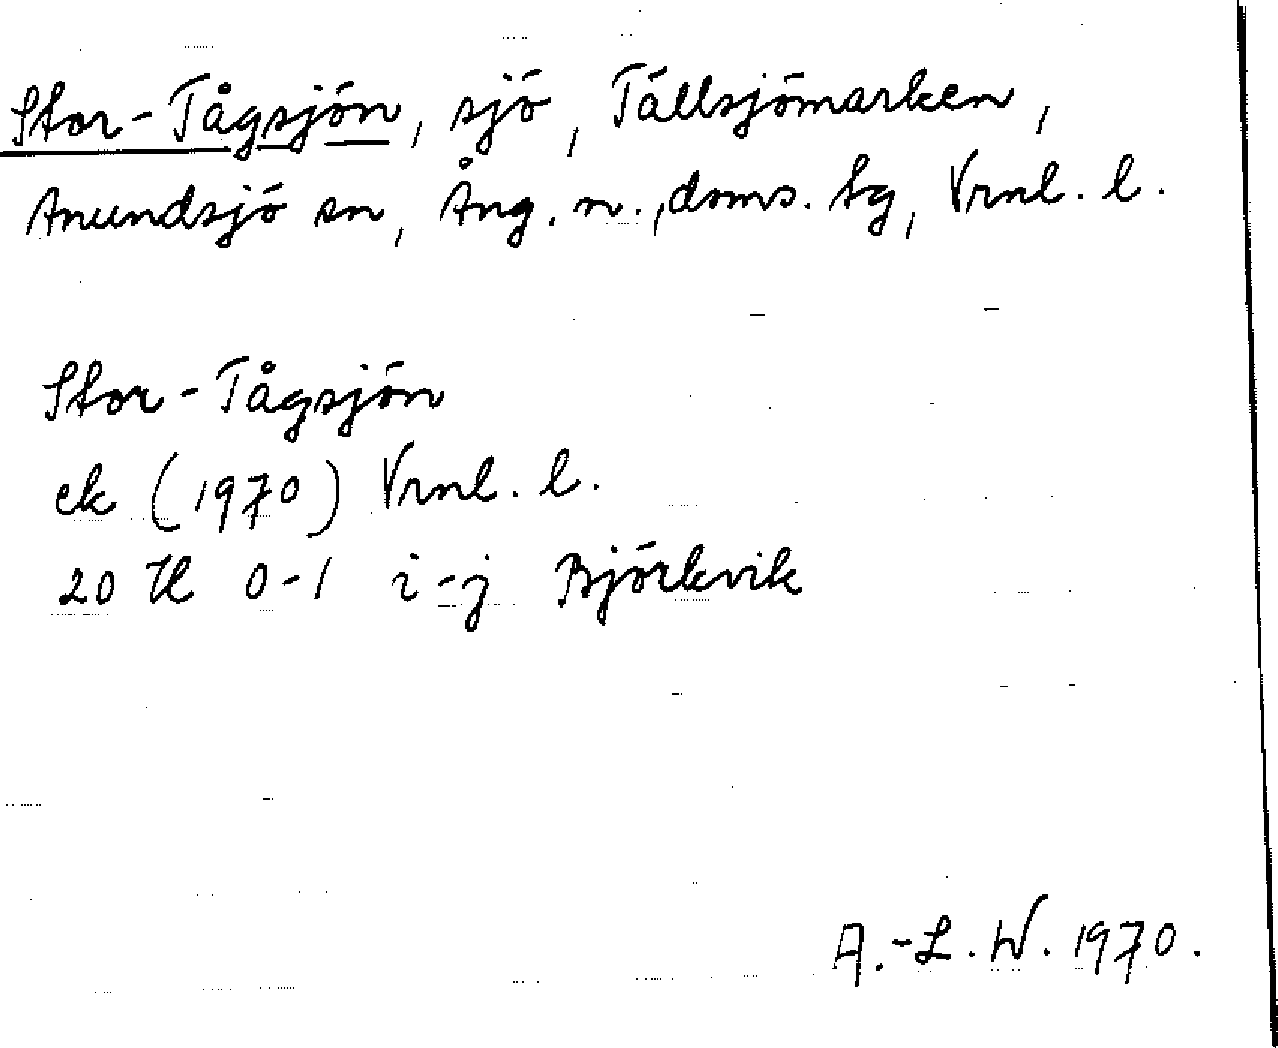 Stor-Tågsjön, sjö, Tällsjömarken,
Anundsjö sn, Ång. n., doms. sg, Vrnl. l.
Stor-Tågsjön
ek (1970) Vrnl. l.
20 H 0-1 i-j Björkvik
A.-L. W. 1970.